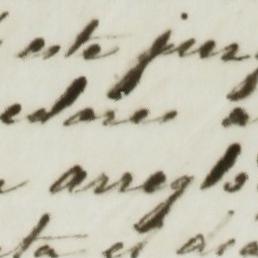 este juz
edores a
arregló
ta el dia